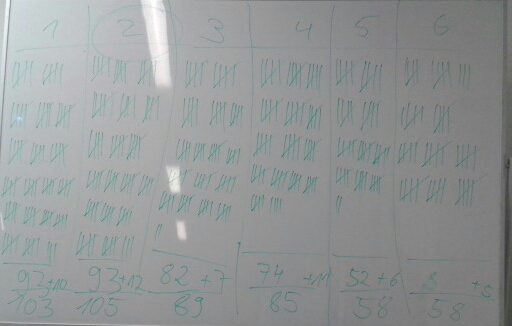 1 2 3 4 5 6
93+12 82 +7 74 +11 52+6
103 105 89 85 58 58